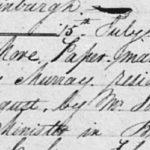 inburgh.
15th July
Shore, Paper-ma
y Murray, resi
gust, by Mr
Minister in